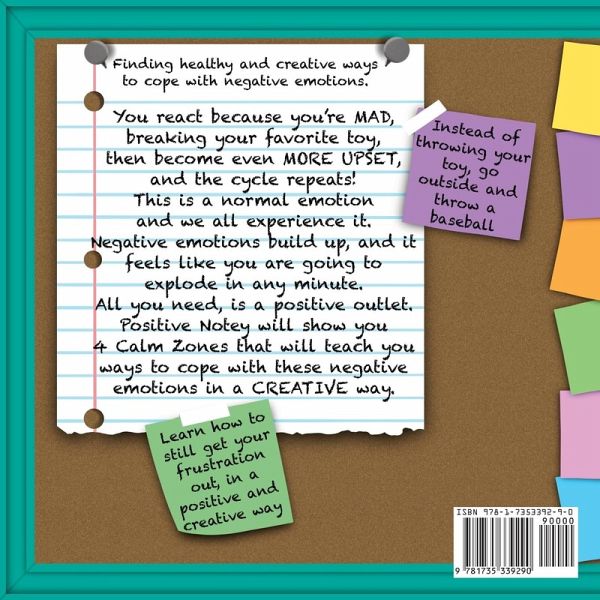 Finding healthy and creative ways
to cope with negative emotions.
You react because you're MAD,
breaking your favorite toy,
then become even MORE UPSET,
and the cycle repeats!
This is a normal emotion
and we all experience it.
Negative emotions build up, and it
feels like you are going to
explode in any minute.
All you need, is a positive outlet.
Positive Notey will show you
4 Calm Zones that will teach you
ways to cope with these negative
emotions in a CREATIVE way.
Instead of
throwing your
toy, go
outside and
throw a
baseball
Learn how to
still get your
frustration
out, in a
positive and
creative way
ISBN 978-1-7353392-9-0
90000
9 781735 339290